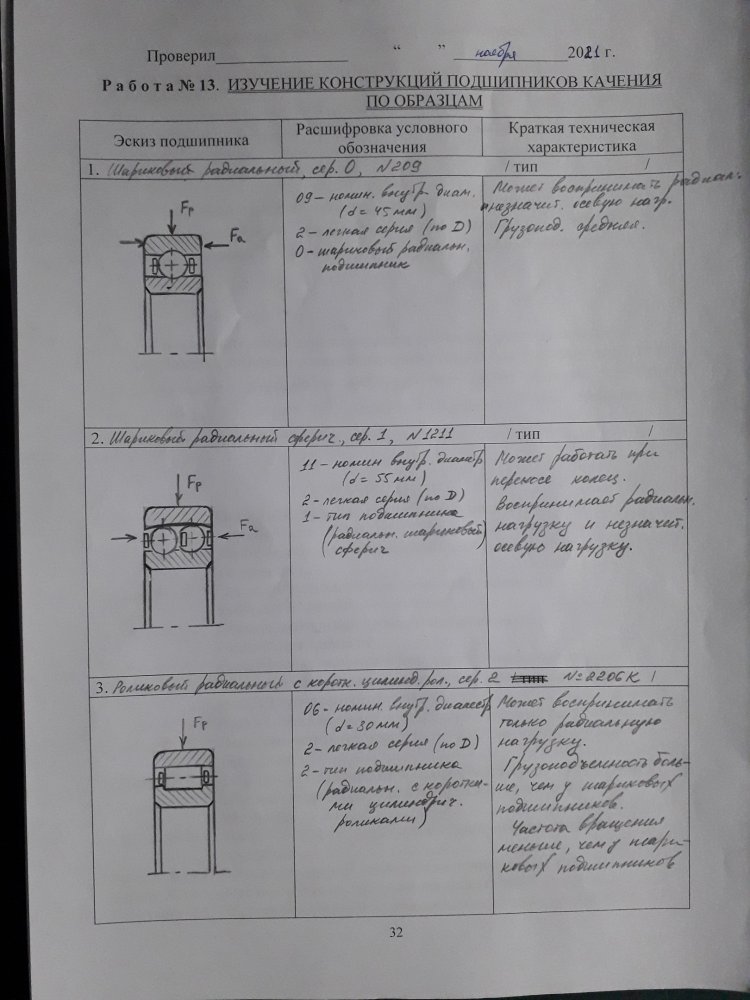 Проверил________________ “ ” ноября 2021 г.
Работа № 13. ИЗУЧЕНИЕ КОНСТРУКЦИЙ ПОДШИПНИКОВ КАЧЕНИЯ
ПО ОБРАЗЦАМ
Эскиз подшипника
Расшифровка условного
обозначения
Краткая техническая
характеристика
1. Шариковый радиальный, сер. 0, N209 / тип /
Fр
Fа
09 – номин. внутр. диам.
(d = 45 мм)
2 – легкая серия (по D)
0 – шариковый радиальн.
подшипник
Может воспринимать радиал.
незначит. осевую нагр.
Грузопод. средняя.
2. Шариковый радиальный сферич., сер. 1, N1211 / тип /
Fр
Fа
11 – номин внутр. диаметр
(d = 55 мм)
2 – легкая серия (по D)
1 – тип подшипника
(радиальн. шариковый)
сферич
Может работать при
перекосе колец.
Воспринимает радиальн.
нагрузку и незначит.
осевую нагрузку.
3. Роликовый радиальный с коротк. цилинд. рол., сер. 2 №2206К /
Fр
06 – номин. внутр. диаметр
(d = 30 мм)
2 – легкая серия (по D)
2 – тип подшипника
(радиальн. с коротки-
ми цилиндрич.
роликами)
Может воспринимать
только радиальную
нагрузку.
Грузоподъемность боль-
ше, чем у шариковых
подшипников.
Частота вращения
меньше, чем у шари-
ковых подшипников
32